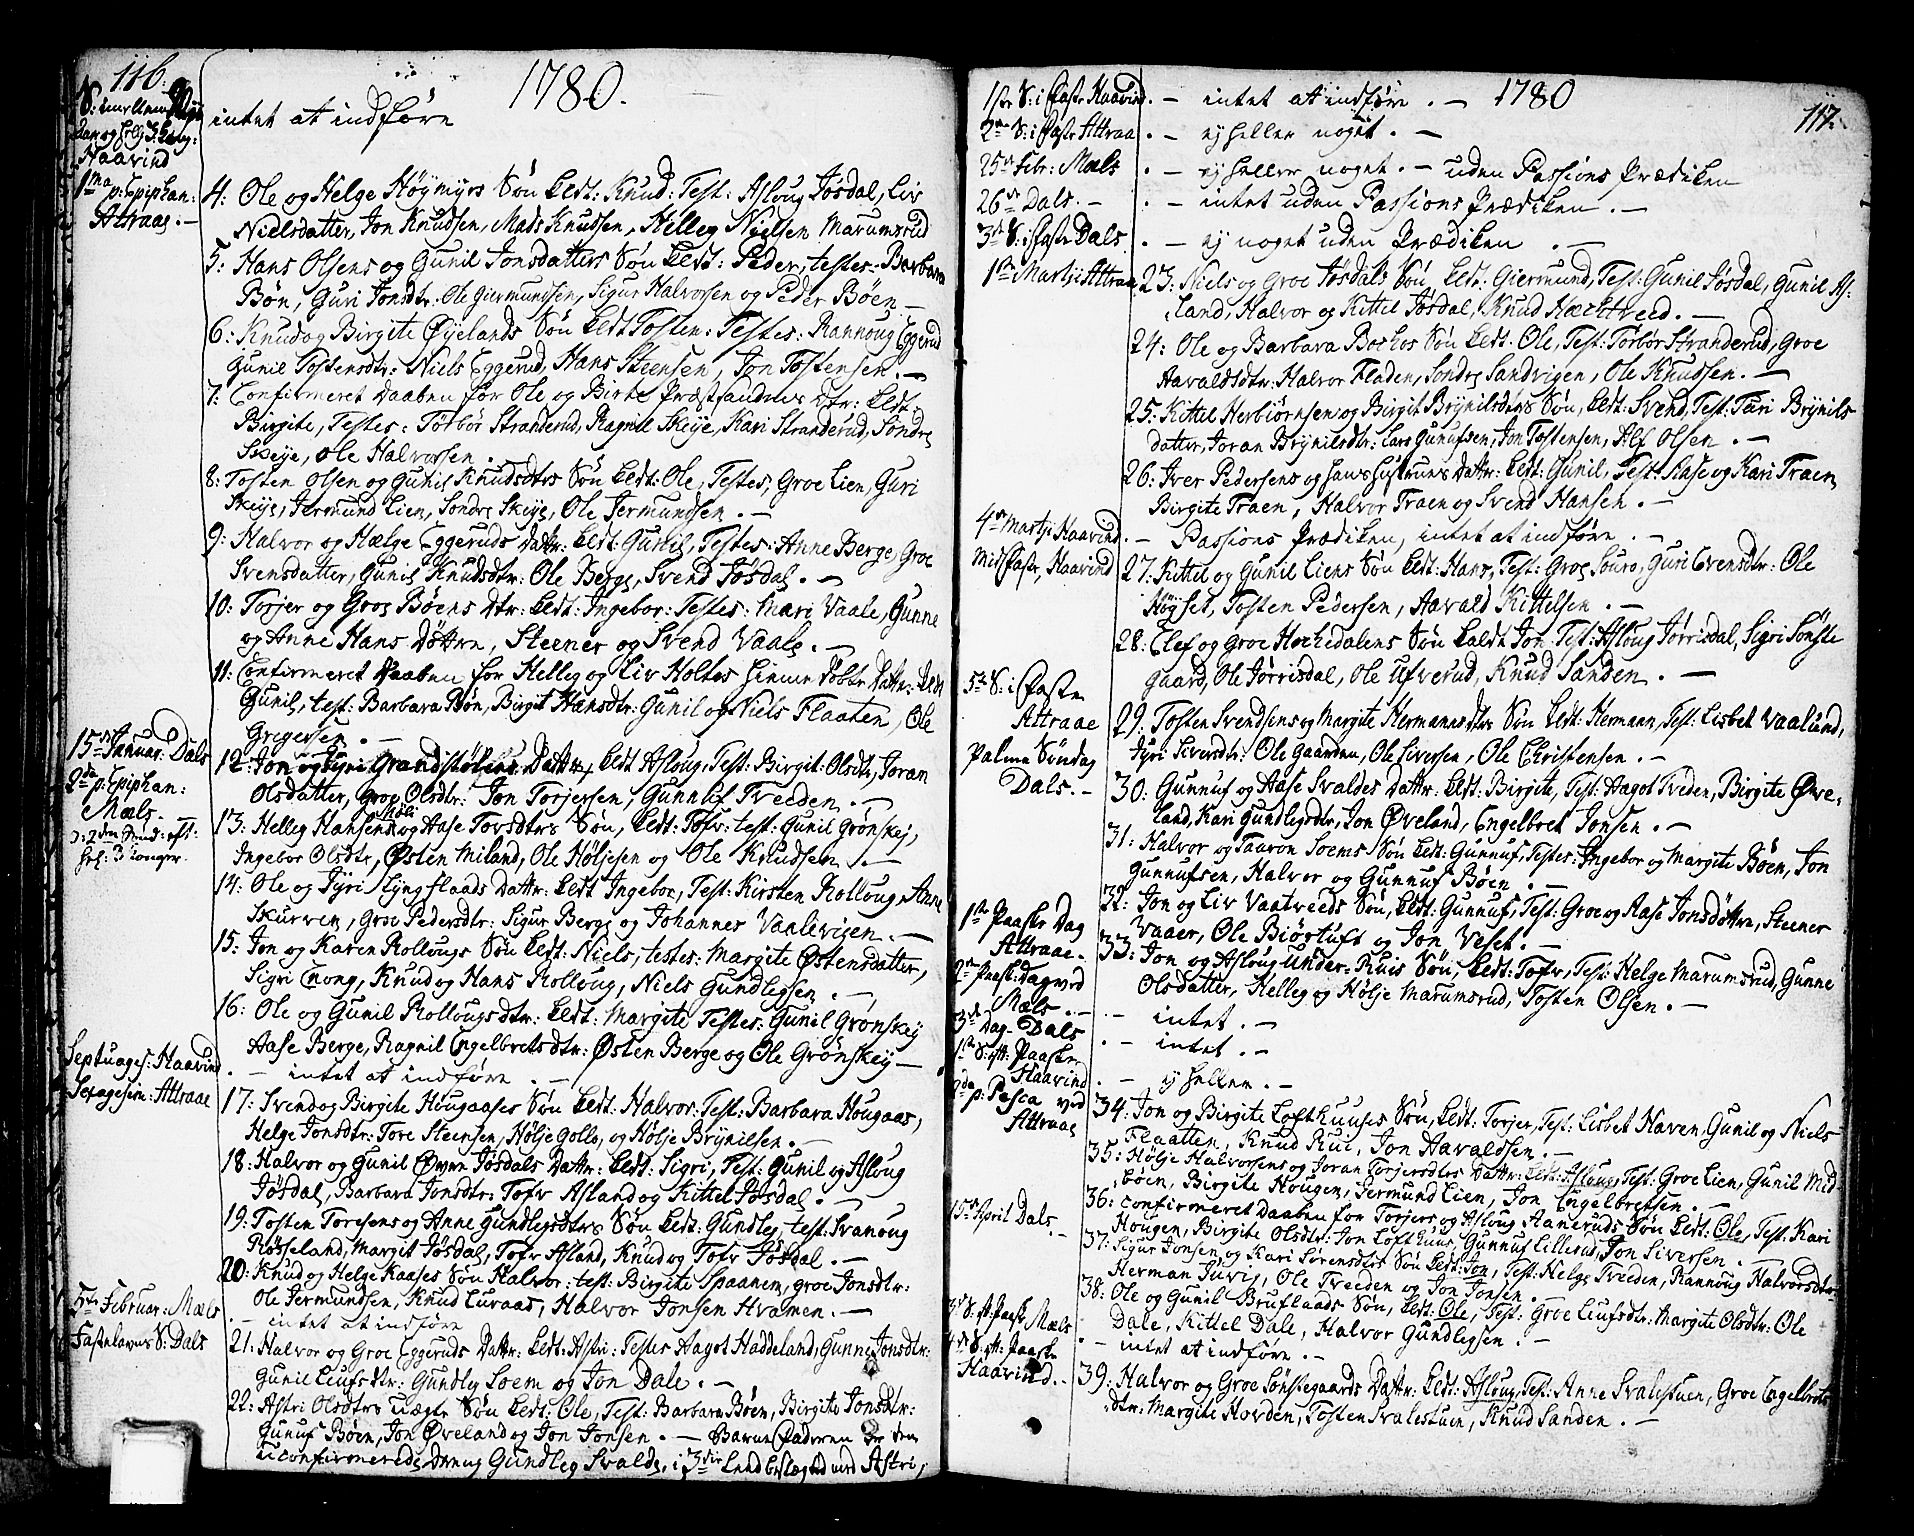 116.
1780.
Haavind
intet at indføre
1ma p: Epiphan:
Attraae. —
4: Ole og Helge Høymyrs Søn Kldt: Knud: Test: Asloug Jøsdal, Liv
Nielsdatter, Jon Knudsen, Mads Knudsen, Helleg Nielsen Marumsrud
5: Hans Olsens og Gunil Jonsdatters Søn Kldt: Peder, testes: Barbara
Bøn, Guri Jonsdtr: Ole Giermundsen, Sigur Halvorsen og Peder Bøen —
6: Knud og Birgite Øyelands Søn Kldt Tosten: Testes: Rannoug Eggerud
Gunil Tostensdtr: Niels Eggerud, Hans Steensen, Jon Tostensen. —
7: Confirmeret Daaben for Ole og Birte Præstsandnes Dtr: Kldt:
Birgite, Testes: Torbør Stranderud, Ragnil Skeije, Kari Stranderud, Sondre
Skeije, Ole Halvorsen.
8: Tosten Olsen og Gunil Knudsdtrs Søn Kldt: Ole, Testes, Groe Lien, Guri
Skeije, Jermund Lien, Sondre Skeije, Ole Jermundsen. —
9: Halvor og Hælge Eggeruds Dattr: Kldt: Gunil, Testes: Anne Berge, Groe
Svensdatter, Gunil Knudsdtr: Ole Berge, Svend Jøsdal. —
10: Torjer og Groe Bøens Dtr: Kldt: Ingebor: Testes: Mari Vaale, Gunne
og Anne Hans Døttre, Steener og Svend Vaale. —
11: Confirmeret Daaben for Helleg og Liv Holtes hiemme døbte Dattr: Kldt
Gunil, test: Barbara Bøn, Birgit Hansdtr: Gunil og Niels Flaaten, Ole
Gregersen. —
15de Januar: Dals
12: Jon og Jyri Grandstølens Dattr, Kldt Asloug, Test: Birgit Olsdtr, Joran
Olsdatter, Groe Olsdtr: Jon Torjersen, Gunnuf Tveeden. —
2da p: Epiphan:
Mæls.
13: Helleg Hansens og Aase Tovsdtrs Søn, Kldt: Tofv: test: Gunil Grønskej,
Ingebor Olsdtr, Østen Miland, Ole Høljesen og Ole Knudsen. —
14: Ole og Jyri Slingflaads Dattr: Kldt Ingebor, Test: Kirsten Rolloug, Anne
Skurven, Groe Pedersdtr: Sigur Berge og Johannes Vaalevigen. —
15: Jon og Karen Rollougs Søn Kldt: Niels, testes: Margite Østensdatter,
Sigri Enong, Knud og Hans Rolloug, Niels Gundlegsen. —
16: Ole og Gunil Rollougs dtr: Kldt: Margite Testes: Gunil Grønskey
Aase Berge, Ragnil Engelbretsdtr: Østen Berge og Ole Grønskey —
Septuages: Haavind
. — intet at indføre. —
Sexagesim: Attraae
17: Svend og Birgite Hougaases Søn Kldt: Halvor: Test: Barbara Hougaas,
Helge Jonsdtr: Tore Steensen, Hølje Gollo, og Hølje Brynilsen. —
18: Halvor og Gunil Øvre Jøsdals Dattr: Kldt: Sigri, Test: Gunil og Asloug
Jøsdal, Barbara Jonsdtr: Tofv Asland og Kittel Jøsdal. —
19: Tosten Toresens og Anne Gundlegsdtrs Søn Kldt: Gundleg, test: Svanoug
Røsseland, Margit Jøsdal, Tofv Asland, Knud og Tofv Jøsdal. —
20: Knud og Helge Kaases Søn Halvor: test: Birgite Spaanem, Groe Jonsdtr:
Ole Jermundsen, Knud Luraas, Halvor Jonsen Hvamen. —
5te Februar: Mæls
. — intet at indføre
Fastelavns S: Dals
21: Halvor og Groe Eggeruds Dattr: Kldt: Astri: Testes Aagot Haddeland, Gunne Jonsdtr:
Gunil Leufsdtr: Gundleg Soem og Jon Dale. —
22: Astri Olsdtrs uægte Søn Kldt: Ole, Test: Barbara Bøen, Birgite Jonsdtr:
Gunuf Bøen, Jon Øveland og Jon Jonsen. — Barne Faderen er den
uconfirmerede Dreng Gundleg Svalde, i 3die Led beslegted med Astri,
1780
117.
1ste S: i Faste Haavind. — intet at indføre. —
2den S: i Faste Attraa. — ej heller noget. —
25de Febr: Mæls. — ej heller noget. — uden Passions Prædiken
26de Dals. — . — intet uden Passions Prædiken. —
3die S: i Faste Dals. — ej noget uden Prædiken. —
1ste Martji Attraae
23: Niels og Groe Jøsdals Søn, Kldt: Giermund, Test: Gunil Jøsdal, Gunil As-
land, Halvor og Kittil Jøsdal, Knud Hæchtveed. —
24: Ole og Barbara Boskos Søn Kldt: Ole, Test: Torbør Stranderud, Groe
Aavaldsdtr: Halvor Fladen, Sondre Sandvigen, Ole Knudsen. —
25: Kittil Herbiørnsen og Birgit Brynilsdtrs Søn, Kldt: Svend, Test: Tari Brynils
datter, Joran Brynilsdtr: Lars Gunufsen, Jon Tostensen, Alf Olsen. —
26: Iver Pedersens og hans Hustrues Dattr: Kldt: Gunil, Test: Aase og Kari Traen
Birgite Traen, Halvor Traen og Svend Hansen. —
4de Martji Haavind. — Passions Prædiken, intet at indføre. —
Midfaste, Haavind
27: Kittil og Gunil Liens Søn Kldt: Hans, Test: Groe Souro, Guri Evensdtr: Ole
Høyset, Tosten Pedersen, Aavald Kittelsen. —
28: Elef og Groe Hochedalens Søn Kaldt Jon: Test: Asloug Jørrisdal, Sigri Sønste
gaard, Ole Jørrisdal, Ole Ufverud, Knud Sanden. —
5te S: i Faste
Attraae
29: Tosten Svendsens og Margite Hermansdtrs Søn Kldt: Hermann, Test: Lisbet Vaalund,
Jyri Siversdtr: Ole Gaarden, Ole Siversen, Ole Christensen. —
Palme Søndag
Dals. —
30: Gunnuf og Aase Svaldes Dattr: Kldt: Birgite, Test: Aagot Tveden, Birgite Øve-
land, Kari Gundlegsdtr, Jon Øveland, Engelbret Jonsen. —
31: Halvor og Taaron Soems Søn Kldt: Gunnuf, Testes: Ingebor og Margite Bøen, Jon
Gunnufsen, Halvor og Gunnuf Bøen. —
1ste Paaske Dag
Attraae. —
32: Jon og Liv Vaatveeds Søn, Kldt: Gunnuf, Test: Groe og Aase Jonsdøttre, Steener
Vaaer, Ole Biørtuft og Jon Veset. —
33: Jon og Asloug Under-Ruis Søn, Kldt: Tofv, Test: Helge Marumsrud, Gunne
Olsdatter, Helleg og Hølje Marumsrud, Tosten Olsen. —
2den Paaske dag ved
Mæls. — . — intet. —
3die Dag Dals . — intet. —
1ste S: eft: Paaske
Haavind . — ej heller. —
2da p: Pasca ved
Attraae
34: Jon og Birgite Lofthuuses Søn, Kldt: Torjer, Test: Lisbet Haven, Gunil og Niels
Flaatten, Knud Rui, Jon Aavaldsen. —
35: Hølje Halvorsens og Joran Torjersdtrs Dattr: Kldt: Asloug, Test: Groe Lien, Gunil Mid-
bøen, Birgite Hougen, Jermund Lien, Jon Engelbretsen. —
15de April Dals.
36: Confirmeret Daaben for Torjers og Asloug Aaneruds Søn Kldt: Ole, Test: Kari
Hougen, Birgite Olsdtr: Jon Lofthuus, Gunnuf Lillerud, Jon Siversen.
37: Sigur Jonsen og Kari Sørensdtrs Søn Kldt: Jon, Test: Helge Tveeden, Rannoug Halvorsdtr
Herman Juvig, Ole Tveeden og Jon Jonsen. —
38: Ole og Gunil Bruflaads Søn, Kldt: Ole, Test: Groe Leufsdtr: Margite Olsdtr: Ole
Dale, Kittel Dale, Halvor Gundlegsen. —
3die S: eft: Paaske Mæls . — intet at indføre. —
4de S: eft: Paaske
Haavind. —
39: Halvor og Groe Sønstegaards Dattr: Kldt: Asloug, Test: Anne Svalestuen, Groe Engelbrets
dtr: Margite Hovden, Tosten Svalestuen, Knud Sanden. —